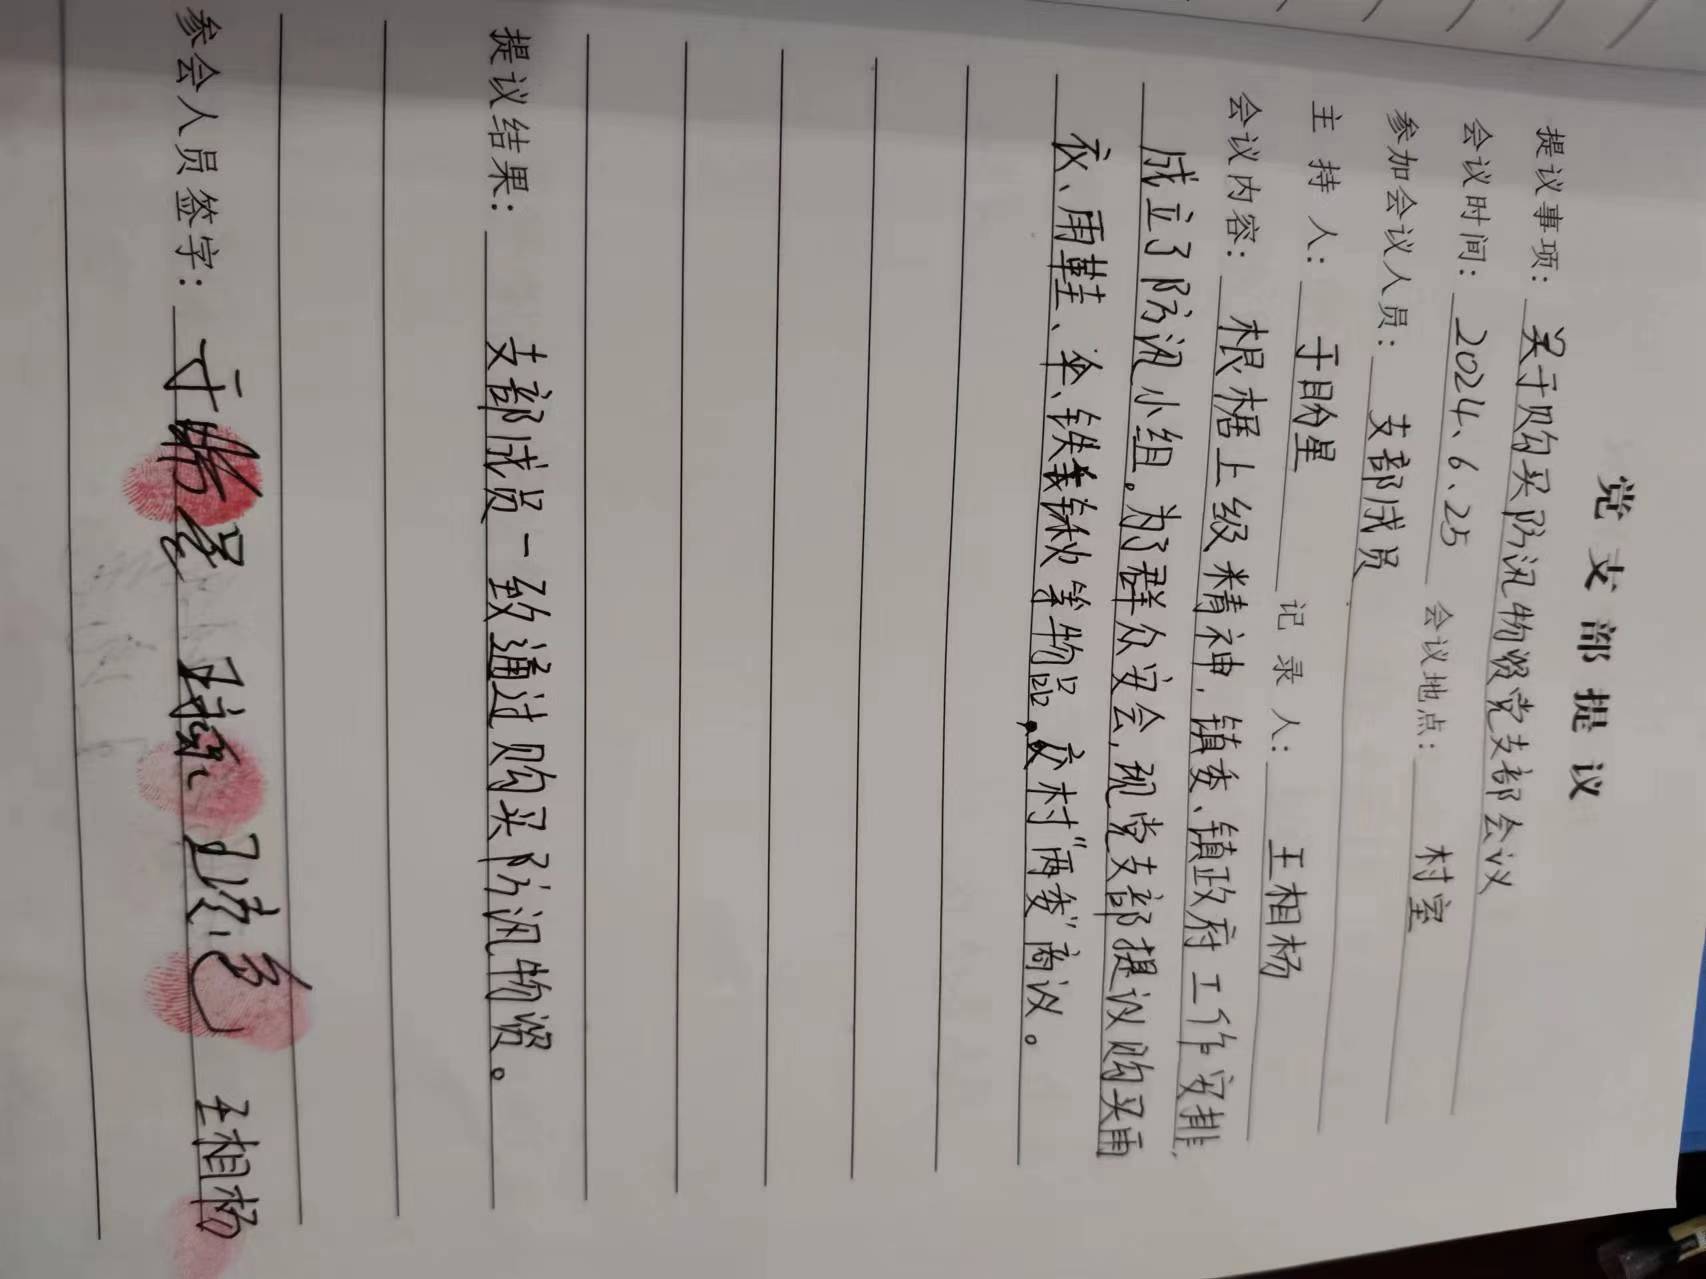 党支部提议
提议事项：关于购买防汛物资党支部会议
会议时间：2024、6、25 会议地点：村室
参加会议人员：支部成员
主持人：于盼星 记录人：王相杨
会议内容：根据上级精神，镇委、镇政府工作安排，
成立了防汛小组。为了群众安全，现党支部提议购买雨
衣、雨鞋、伞、铁锹等物品，交村“两委”商议。
提议结果：支部成员一致通过购买防汛物资。
参会人员签字：于盼星 王相杨